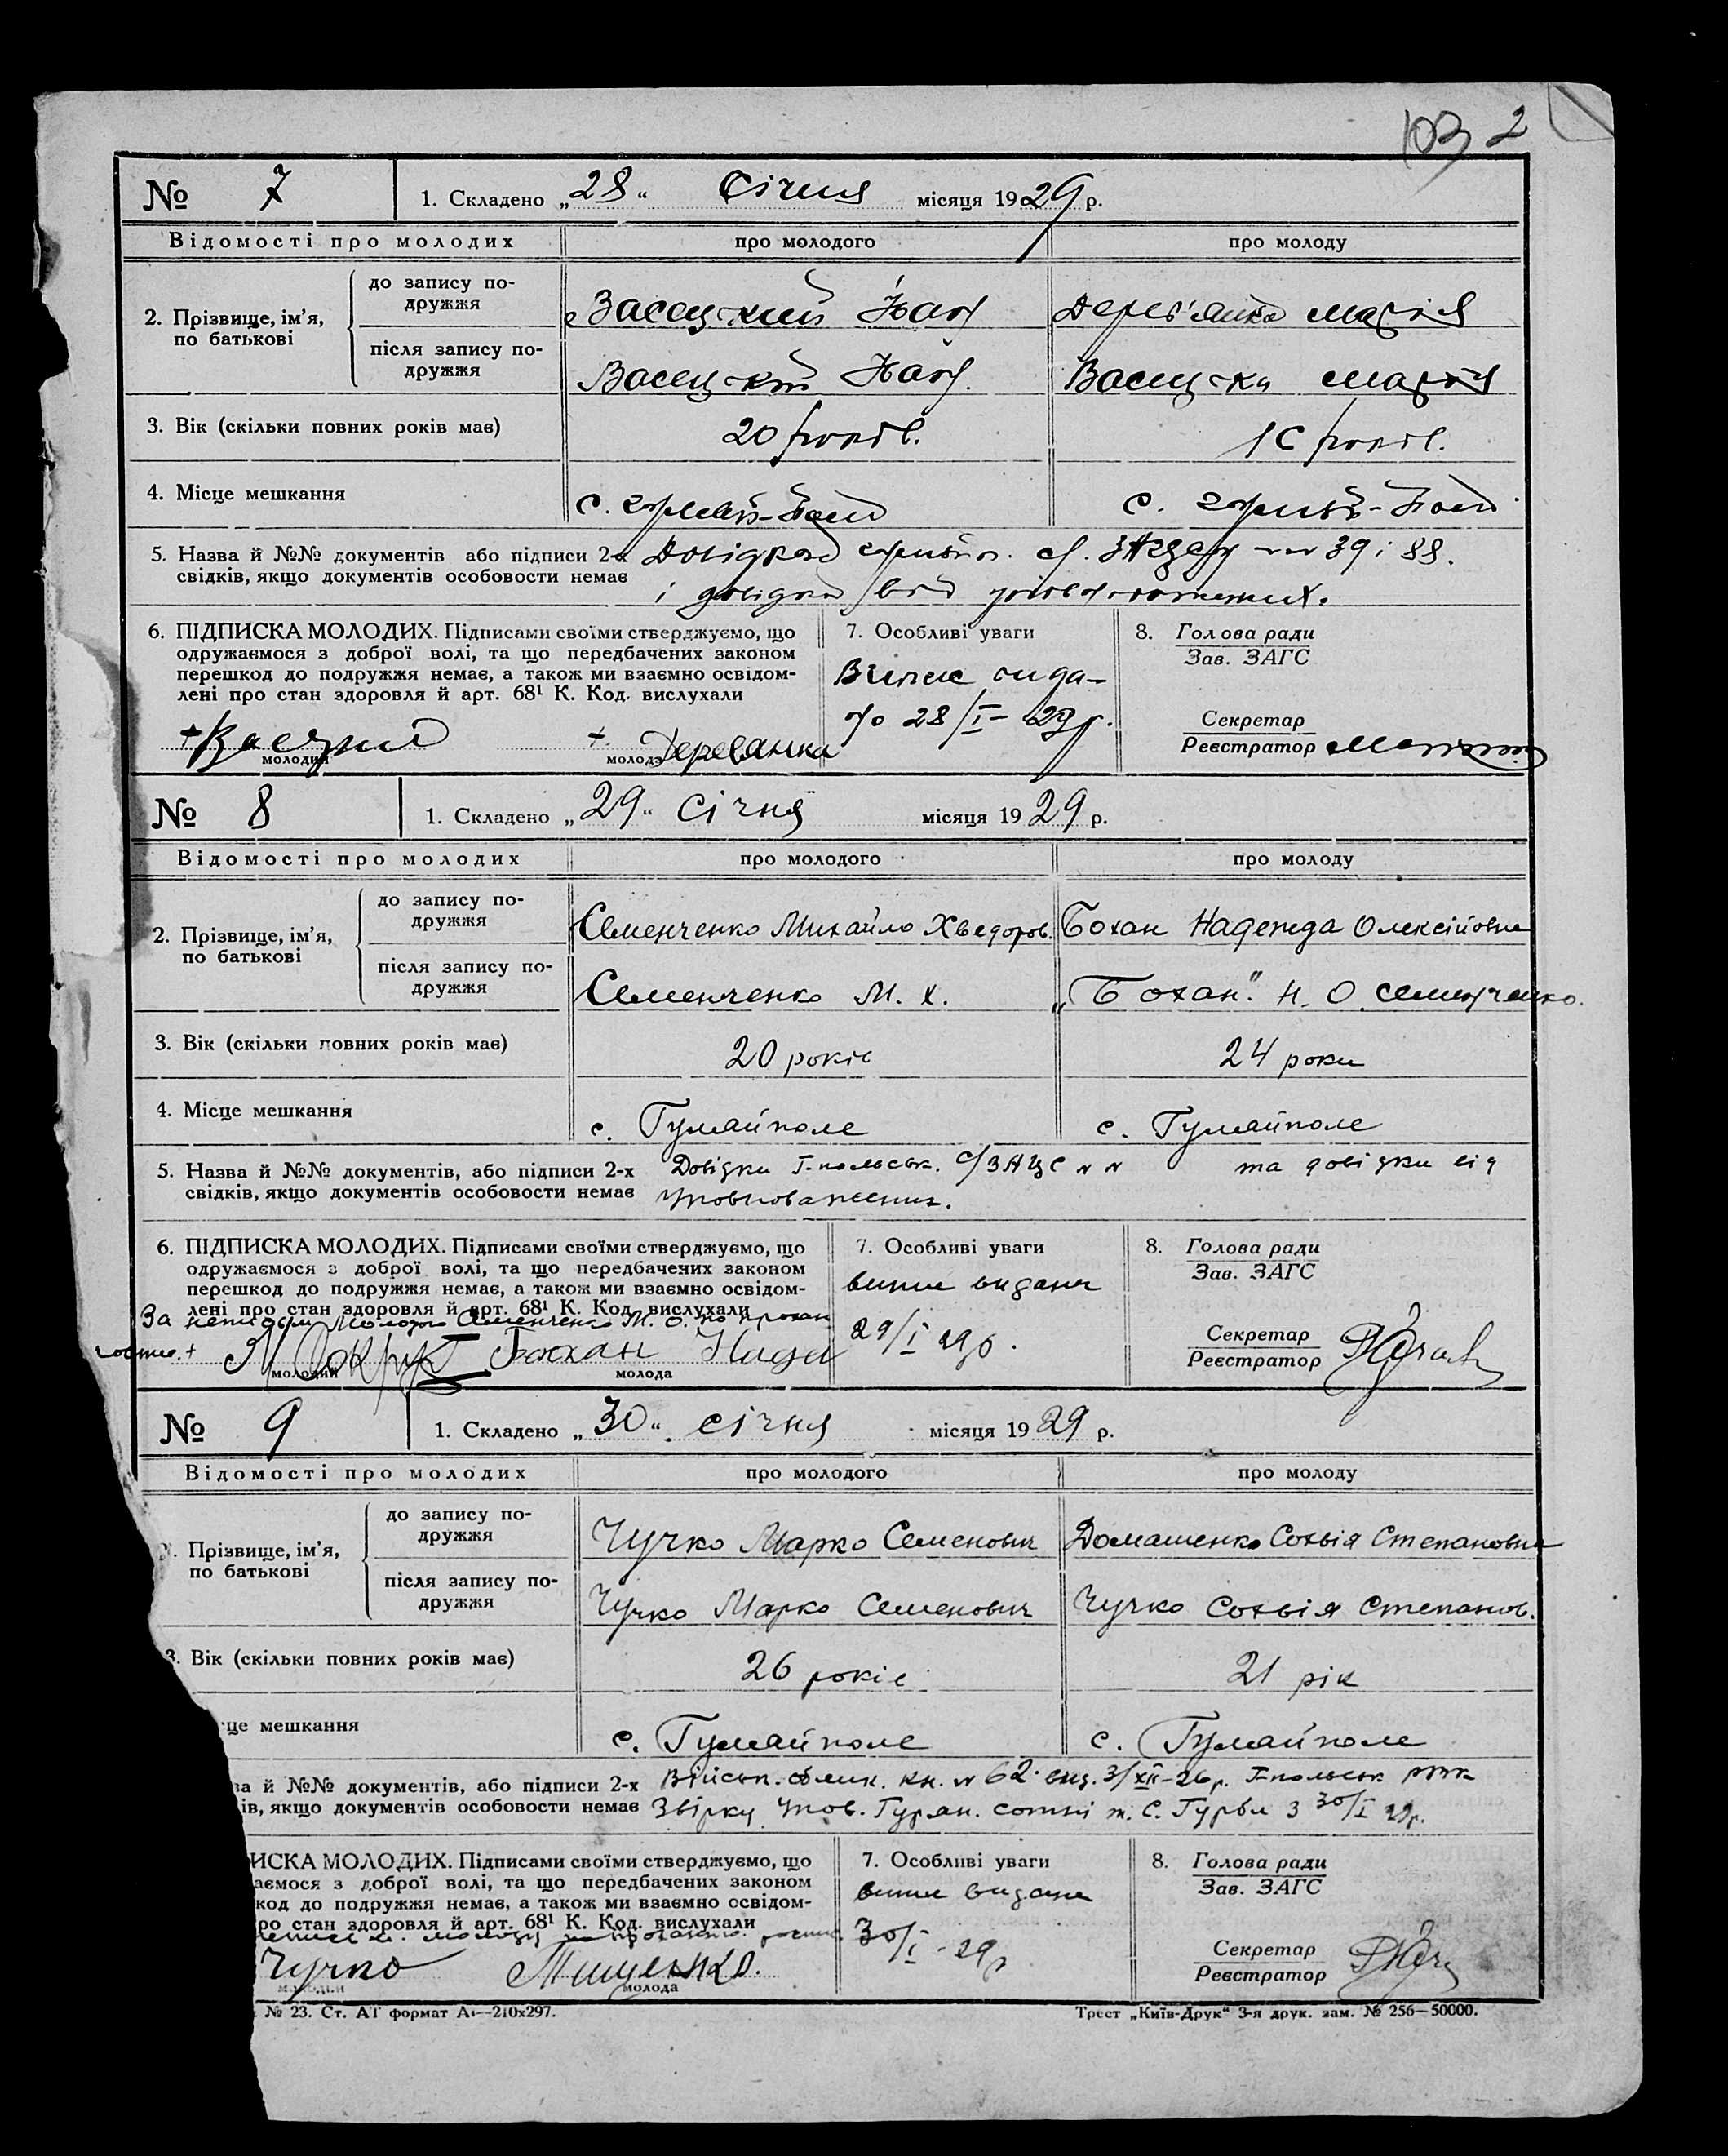 103 2
№ 7 1. Складено „28“ Січня місяця 1929 р.
Відомості про молодих про молодого про молоду
2. Прізвище, ім’я, по батькові
до запису подружжя Васецький Іван Дерев'янко Марія
після запису подружжя Васецький Іван Васецька Марія
3. Вік (скільки повних років має) 20 років. 16 років.
4. Місце мешкання с. с.
5. Назва й №№ документів або підписи 2-х Довідкою ЗАЦСу 39 і 88.
свідків, якщо документів особовости немає і довідки від уповноважених.
6. ПІДПИСКА МОЛОДИХ. Підписами своїми стверджуємо, що
одружаємося з доброї волі, та що передбачених законом
перешкод до подружжя немає, а також ми взаємно освідом-
лені про стан здоровля й арт. 68¹ К. Код. вислухали
7. Особливі уваги
видано 28/I-29р.
8. Голова ради
Зав. ЗАГС
Секретар
Реєстратор
молодий + Деревянка молода
№ 8 1. Складено „29“ Січня місяця 1929 р.
Відомості про молодих про молодого про молоду
2. Прізвище, ім’я, по батькові
до запису подружжя Семенченко Михайло Хведоров. Бохан Надежда Олексіїовна
після запису подружжя Семенченко М. Х. „Бохан“ Н. О. Семенченко.
3. Вік (скільки повних років має) 20 років 24 роки
4. Місце мешкання с. Гумайполе с. Гумайполе
5. Назва й №№ документів, або підписи 2-х Довідки Г-польськ. с/ЗАЦС №№ та довідки від
свідків, якщо документів особовости немає уповноважених.
6. ПІДПИСКА МОЛОДИХ. Підписами своїми стверджуємо, що
одружаємося з доброї волі, та що передбачених законом
перешкод до подружжя немає, а також ми взаємно освідом-
лені про стан здоровля й арт. 68¹ К. Код. вислухали
За Семенченко М.
Бохан Надя
молодий молода
7. Особливі уваги
видана
29/I 29р.
8. Голова ради
Зав. ЗАГС
Секретар
Реєстратор
№ 9 1. Складено „30“ січня місяця 1929 р.
Відомості про молодих про молодого про молоду
Прізвище, ім’я, по батькові
до запису подружжя Чучко Марко Семенович Домашенко Сохвія Степановна
після запису подружжя Чучко Марко Семенович Чучко Сохвія Степанов.
3. Вік (скільки повних років має) 26 років 21 рік
це мешкання с. Гумайполе с. Гумайполе
ва й №№ документів, або підписи 2-х Військ. облик. кн. № 62 вид. 3/XII-26р. Г-польськ
ів, якщо документів особовости немає упов. сотні т. С. Гурби з 30/I 29р.
ИСКА МОЛОДИХ. Підписами своїми стверджуємо, що
аємося з доброї волі, та що передбачених законом
код до подружжя немає, а також ми взаємно освідом-
ро стан здоровля й арт. 68¹ К. Код. вислухали
Чучко
молодий молода
7. Особливі уваги
видана
30/I-29р
8. Голова ради
Зав. ЗАГС
Секретар
Реєстратор
№ 23. Ст. АТ формат А₄—210x297. Трест „Київ-Друк“ 3-я друк. зам. № 256—50000.